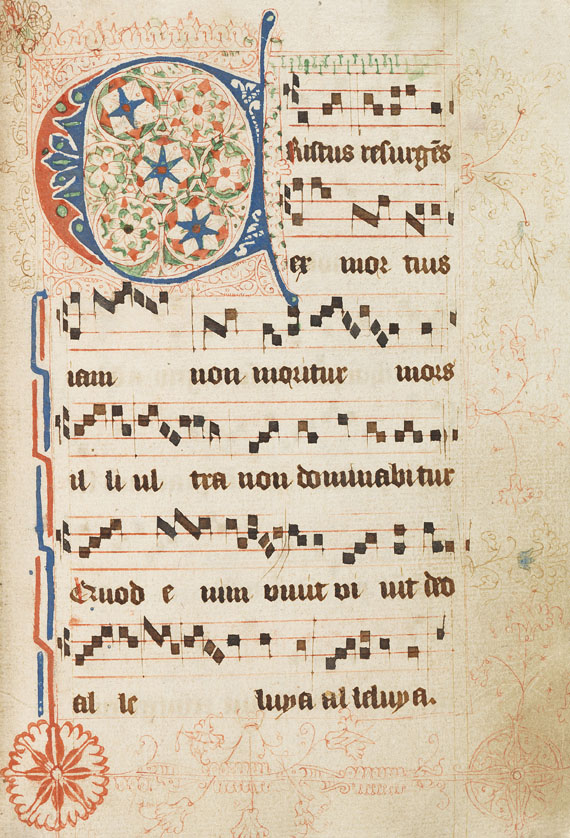 CRistus resurgēs
ex mor tuus
iam non moritur mors
il li ul tra non dominabitur
Quod e nim viuit vi uit deo
al le luya al leluya.